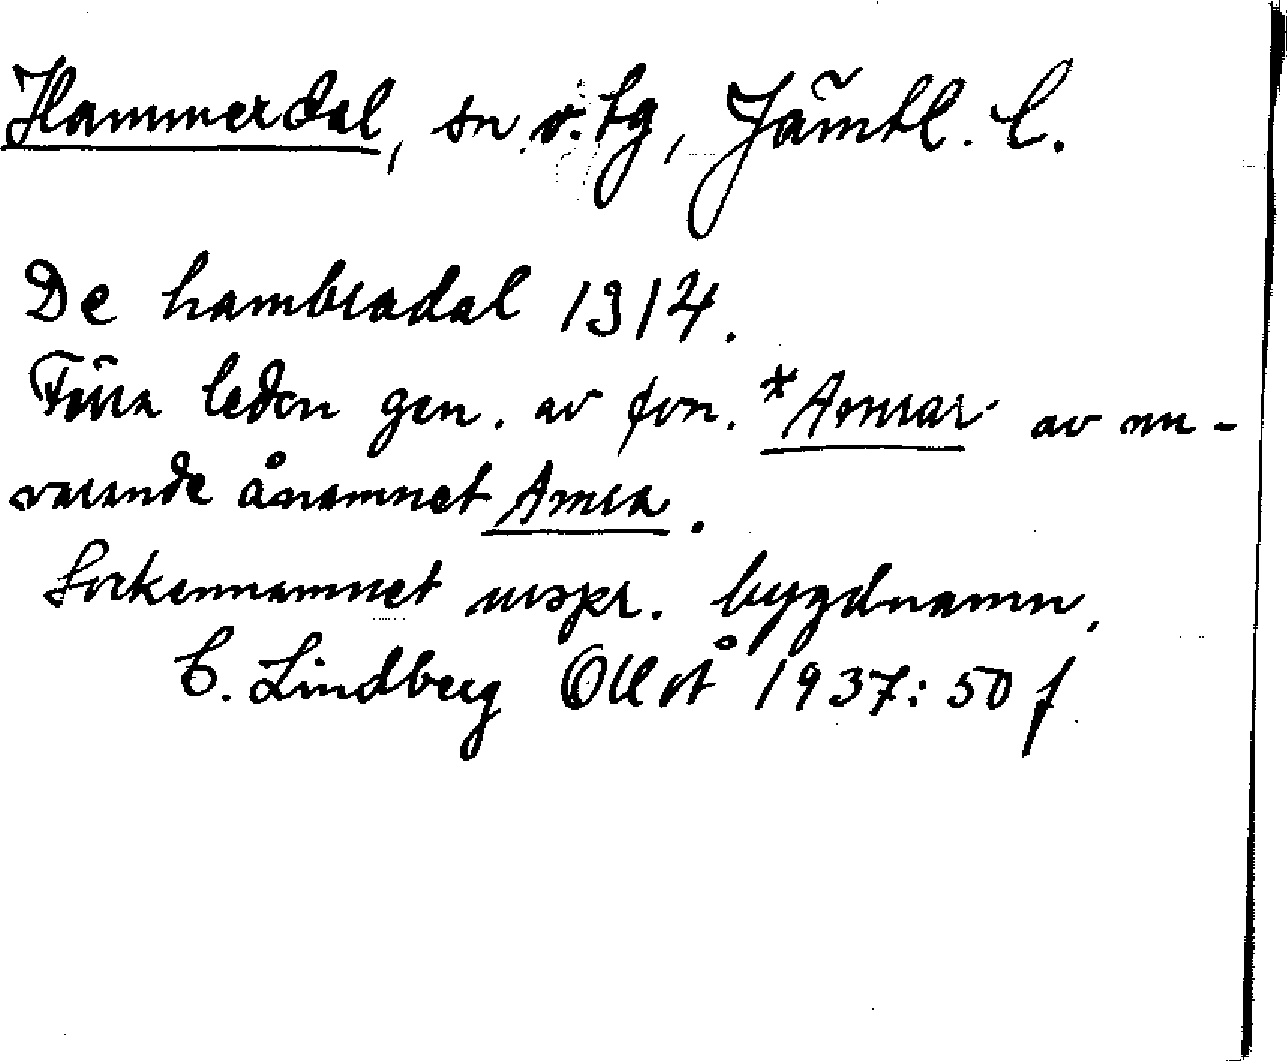 Hammerdal, sn o. tg, Jämtl. l.
De hambradal 1314.
Förra leden gen. av fvn. *Amrar av nu-
varande ånamnet Amra.
Sockennamnet urspr. bygdnamn.
C. Lindberg 1937: 50 f